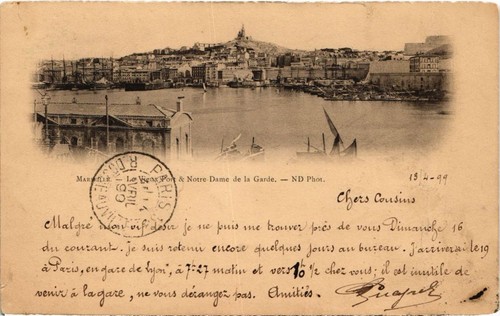 MARSEILLE. — Le Vieux Port & Notre-Dame de la Garde. — ND Phot.
PARIS
AVRIL
99
13/4-99
Chers Cousins
Malgré mon vif désir je ne puis me trouver près de vous Dimanche 16
du courant. Je suis retenu encore quelques jours au bureau. J'arriverai le 19
à Paris, en gare de Lyon, à 7h27 matin et vers 10 ½ chez vous; il est inutile de
venir à la gare, ne vous dérangez pas. Amitiés.